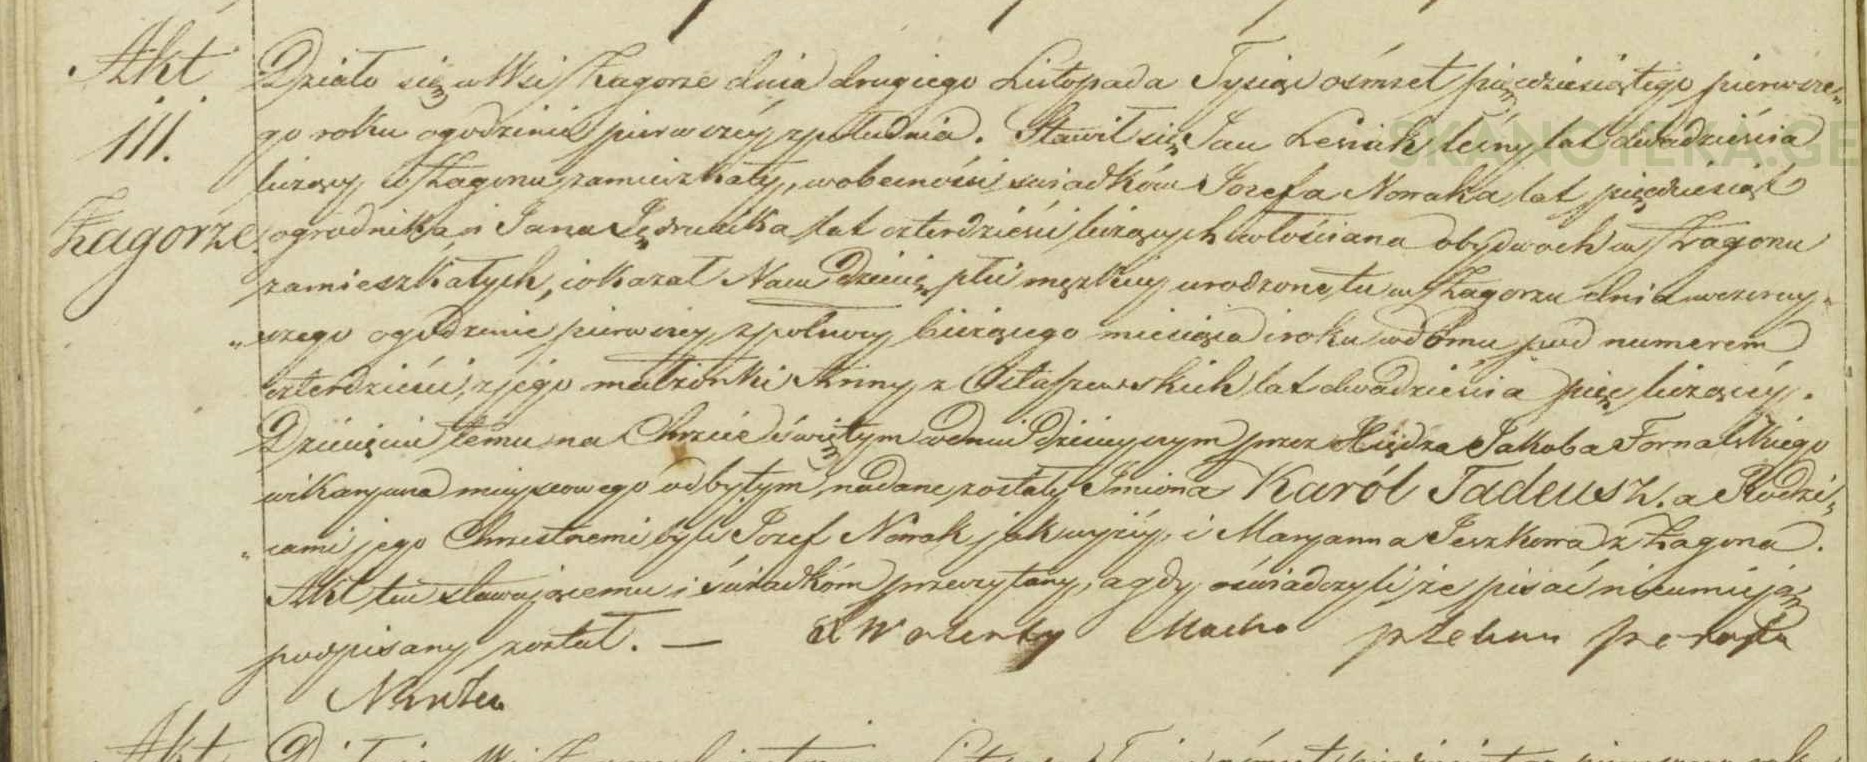 Akt
111.
Zagorze.
Działo się w Wsi Zagorze dnia drugiego Listopada Tysiąc ośmset pięćdziesiątego pierwsze„
go roku o godzinie pierwszéy z południa. Stawił się Jan Lesiak leśny lat dwadzieścia
liczący w Zagorzu zamieszkały, w obecności świadków Jozefa Nowaka lat pięćdziesiąt
ogrodnika i Jana lat czterdzieści liczących włościana obydwóch w Zagorzu
zamieszkałych, i okazał Nam Dziecię płci męzkiey urodzone tu w Zagorzu dnia wczoray„
„szego o godzinie pierwszey z połnocy bieżącego miesiąca i roku w domu pod numerem
czterdzieści, z jego małżonki Anny z lat dwadzieścia pięć liczącéy.
Dziecięciu temu na Chrzcie świętym w dniu dzisieyszym przez Xiędza Jakóba Fornalskiego
wikaryusza mieyscowego odbytym, nadane zostały Imiona Karól Tadeusz, a Rodzi„
„cami jego Chrzestnemi byli Jozef Nowak jak wyżéy, i Maryanna Jeszkowa z Zagorza.
Akt ten stawającemu i świadkóm przeczytany, a gdy oświadczyli że pisać nieumieją
podpisany został. — X Walenty
SKANOTEKA.GE
Akt